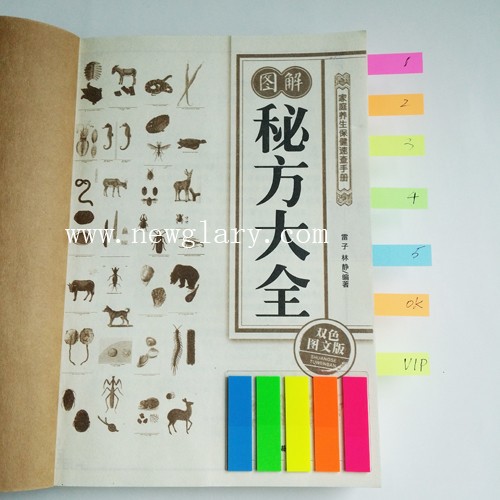 图解
秘方大全
家庭养生保健速查手册
雷子 林静/编著
双色
图文版
SHUANGSE
TUWENBAN
www.newglary.com
1
2
3
4
5
OK
VIP